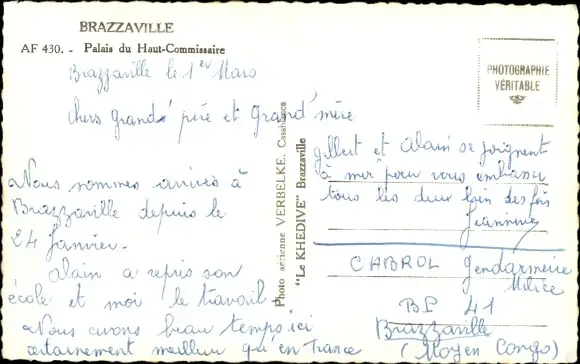 BRAZZAVILLE
AF 430. - Palais du Haut-Commissaire
Brazzaville le 1er Mars
Chers Grand' père et Grand'mère
Nous sommes arrivés à
Brazzaville depuis le
24 Janvier.
Alain a repris son
école et moi le travail.
Nous avons beau temps ici
certainement meilleur qu'en France
Photo aérienne VERBELKE. Casablanca
"Le KHEDIVE" Brazzaville
PHOTOGRAPHIE
VÉRITABLE
Gilbert et Alain se joignent
à moi pour vous embrasser
tous les deux bien des fois
Jeannine
CABROL Gendarmerie
Milice
BP 41
Brazzaville
(Moyen Congo)